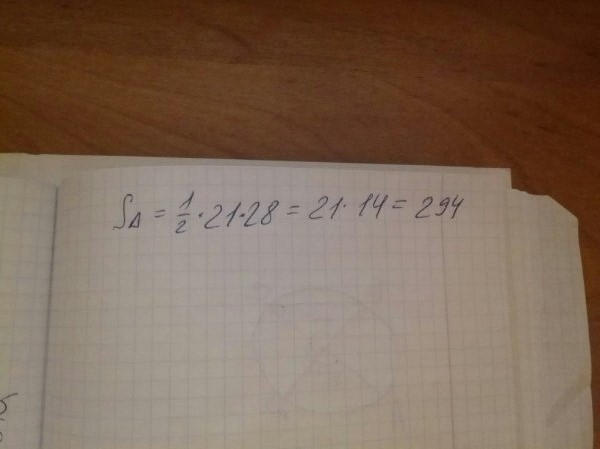 S△ = 1/2 · 21 · 28 = 21 · 14 = 294